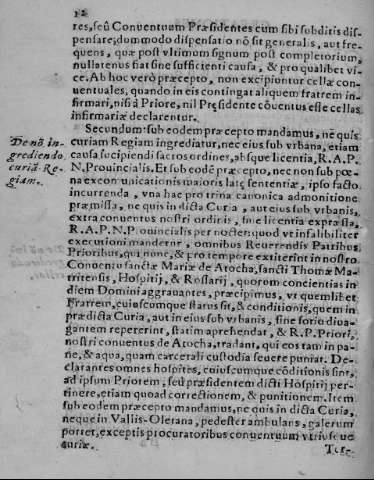 12
res, seû Conuentuum Præsidentes cum sibi subditis dis-
pensare; dommodo dispensatio nõ sit generalis, aut fre-
quens, quæ post vltimum signum post completorium,
nullatenus fiat sine sufficienti causa, & pro qualibet vi-
ce. Ab hoc verò præcepto, non excipiuntur cellæ con-
uentuales, quando in eis contingat aliquem fratrem in-
firmari, nisi à Priore, nil Pręsidente cõuentus esse cellas
infirmariæ declarentur.
Secundum: sub eodem præcepto mandamus, ne quis
curiam Regiam ingrediatur, nec eius sub vrbana, etiam
causa sucipiendi sacros ordines, absque licentia, R.A.P.
N. Prouincialis. Et sub eodẽ præcepto, nec non sub pœ-
na excommunicationis maioris latę sententiæ, ipso facto
incurrenda, vna hac pro trina canonica admonitione
præmissa, ne quis in dicta Curia, aut eius sub vrbanis,
extra conuentus nostri ordinis, sine licentia expressa,
R. A. P. N. Prouincialis pernoctet: quod vt infalibiliter
executioni mandetur, omnibus Reuerendis Patribus
Prioribus, qui nunc, & pro tempore extiterint in nostro
Conuentu sanctæ Mariæ de Atocha, sancti Thomæ Ma-
tritensis, Hospitij, & Rosarij, quorum concientias in
diem Domini aggrauantes, præcipimus, vt quemlibet
Fratrem, cuiuscumque status sit, & conditionis, quem in
prædicta Curia, aut in eius sub vrbanis, sine sotio diua-
gantem repererint, statim aprehendat, & R.P. Priori,
nostri conuentus de Atocha, tradant, qui eos tam in pa-
ne, & aqua, quam carcerali custodia seuere puniat. De-
clarantes omnes hospites, cuiuscumque cõditionis sint,
ad ipsum Priorem, seu præsidentem dicti Hospitij per-
tinere, etiam quoad correctionem, & punitionem. Item
sub eodem præcepto mandamus, ne quis in dicta Curia,
neque in Vallis-Olerana, pedester ambulans, galerum
portet, exceptis procuratoribus conuentuum vtriusque
curiæ.
De nõ in-
grediendo
curiã Re-
giam.